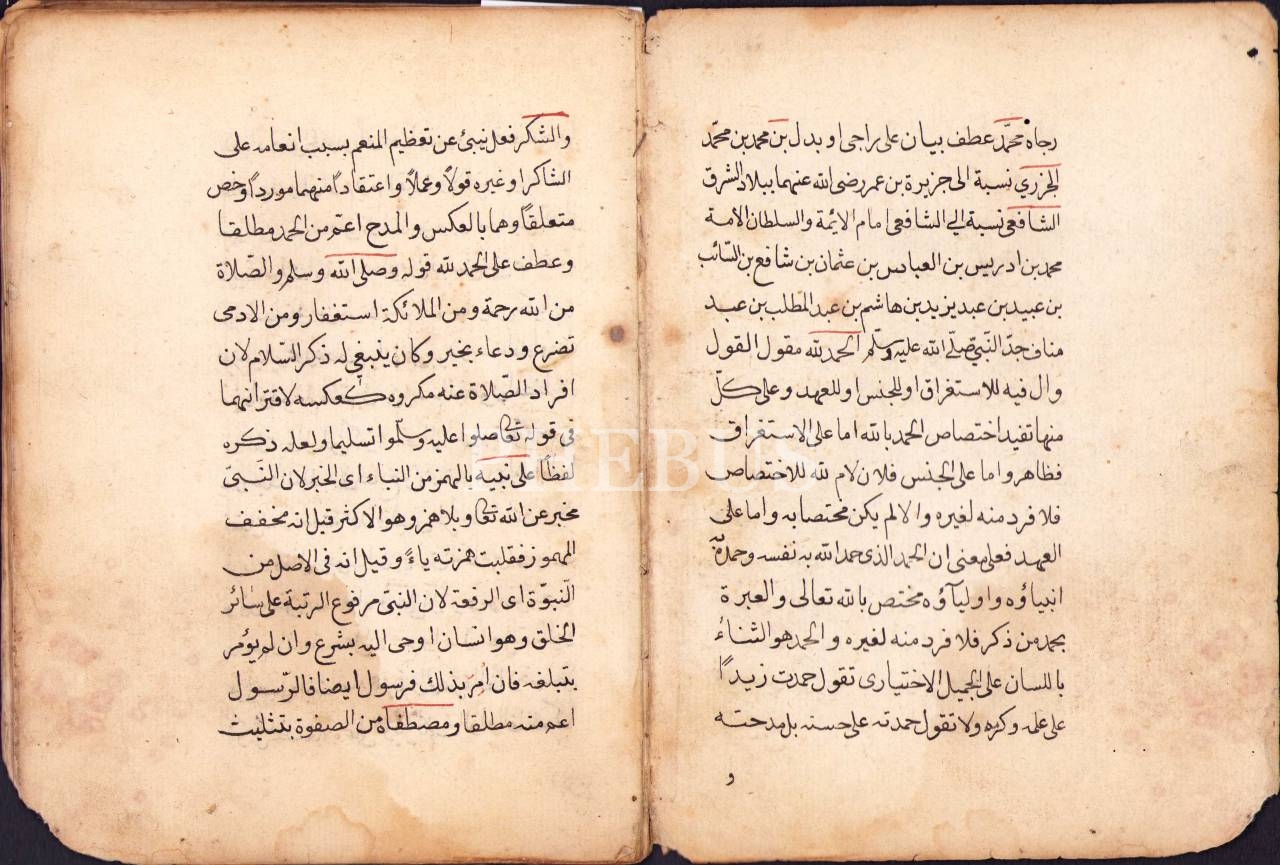 رجاه محمّد عطف بيان على راجى او بدل بن محمد بن محمّد
الجزري نسبة الى جزيرة بن عمر رضى الله عنهما ببلاد الشرق
الشافعى نسبة الى الشافعى امام الائمة والسلطان الامة
محمد بن ادريس بن العباس بن عثمان بن شافع بن السّائب
بن عبيد بن عبد يزيد بن هاشم بن عبد المطلب بن عبد
مناف جدّ النّبيّ صلّى الله عليه وسلّم الحمد لله مقول القول
وال فيه للاستغراق او للجنس او للعهد وعلى كلّ
منها تفيد اختصاص الحمد بالله اما على الاستغراق
فظاهر واما على الجنس فلان لام لله للاختصاص
فلا فرد منه لغيره والا لم يكن مختصا به واما على
العهد فعلى معنى ان الحمد الذى حمد الله به نفسه وحمده
انبياؤه واولياؤه مختص بالله تعالى والعبرة
بحمد من ذكر فلا فرد منه لغيره والحمد هو الثناءُ
باللسان على الجميل الاختيارى تقول حمدت زيداً
على علمه وكرمه ولا تقول حمدته على حسنه بل مدحته
و
والشكر فعل ينبئ عن تعظيم المنعم بسبب انعامه على
الشاكر او غيره قولاً وعملاً واعتقاداً منهما مورداً وخص
متعلقاً وهما بالعكس والمدح اعمّ من الحمد مطلقا
وعطف على الحمد لله قوله وصلى الله وسلم والصّلاة
من الله رحمة ومن الملائكة استغفار ومن الادمى
تضرع ودعاء بخير وكان ينبغي له ذكر السّلام لان
افراد الصّلاة عنه مكروه كعكسه لاقترانهما
فى قوله تعالى صلوا عليه وسلّموا تسليما ولعله ذكره
لفظاً على نبيه بالهمز من النباء اى الخبر لان النّبىّ
مخبر عن الله تعالى وبلا همز وهو الاكثر قيل انه مخفف
المهموز فقلبت همزته ياءً وقيل انه فى الاصل من
النّبوّة اى الرفعة لان النبىّ مرفوع الرتبة على سائر
الخلق وهو انسان اوحى اليه بشرع وان لم يؤمر
بتبلغه فان امر بذلك فرسول ايضا فالرّسول
اعم منه مطلقا ومصطفاه من الصفوة بتثليث
PHEBUS